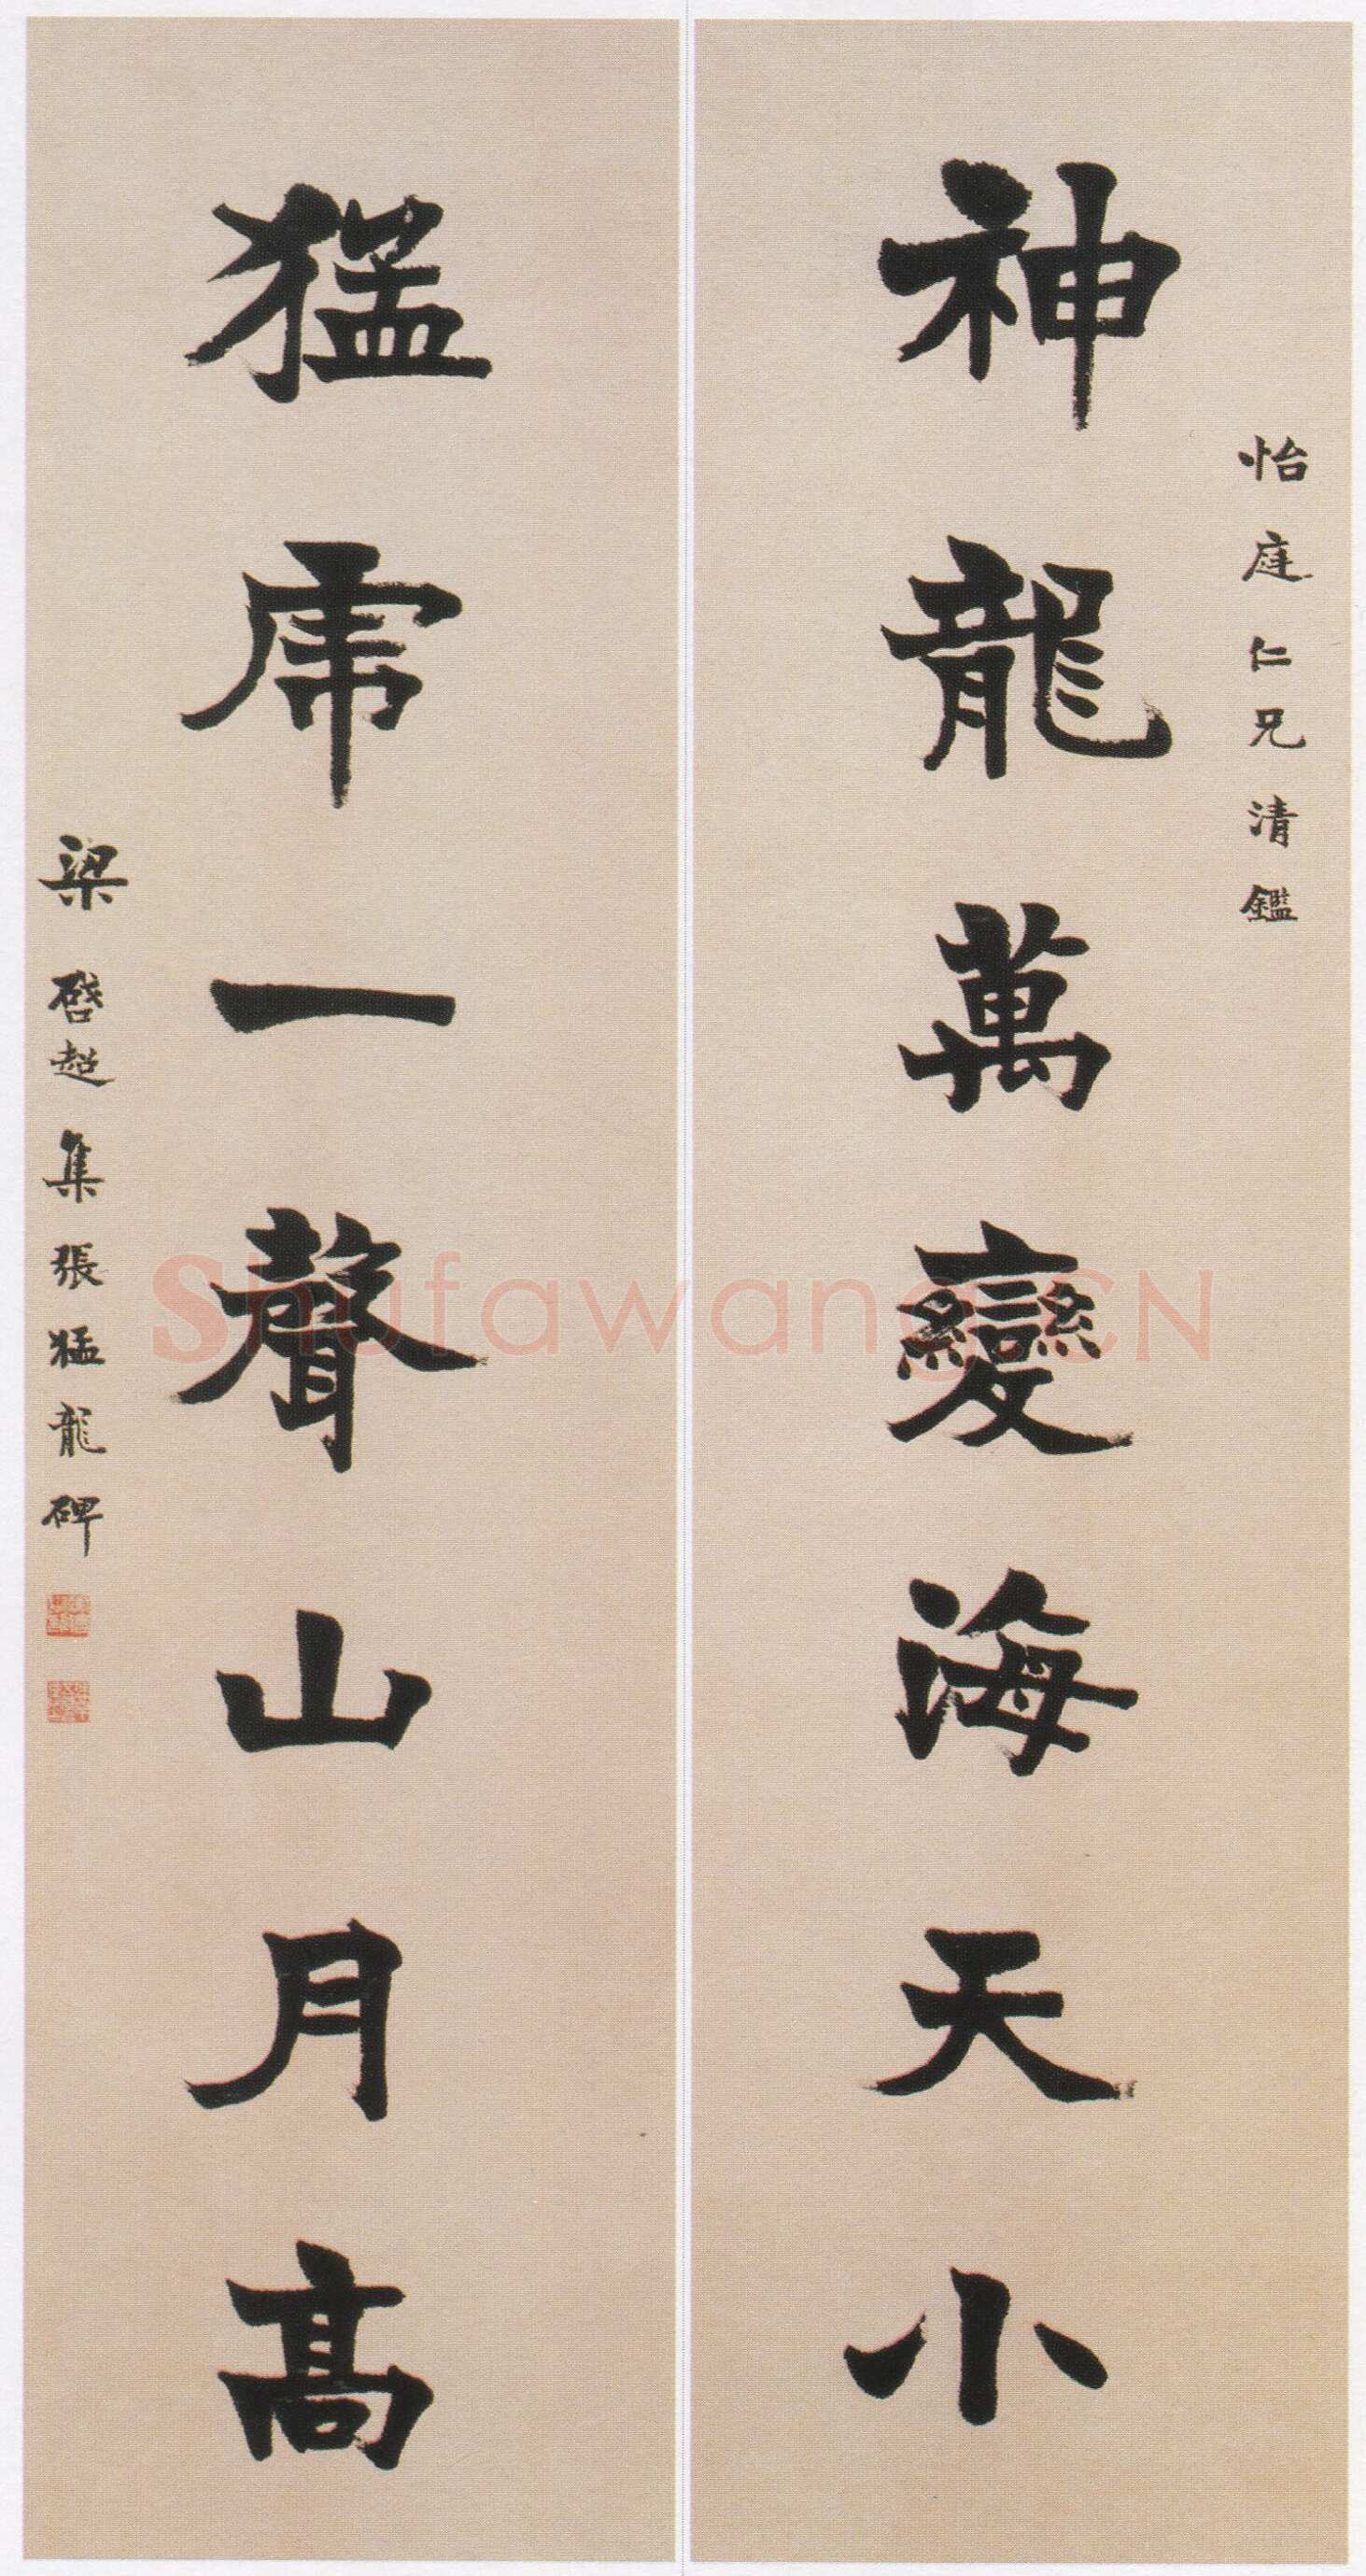 怡庭仁兄清鑑
神龍萬變海天小
猛虎一聲山月高
梁啓超集張猛龍碑
Shufawang.CN